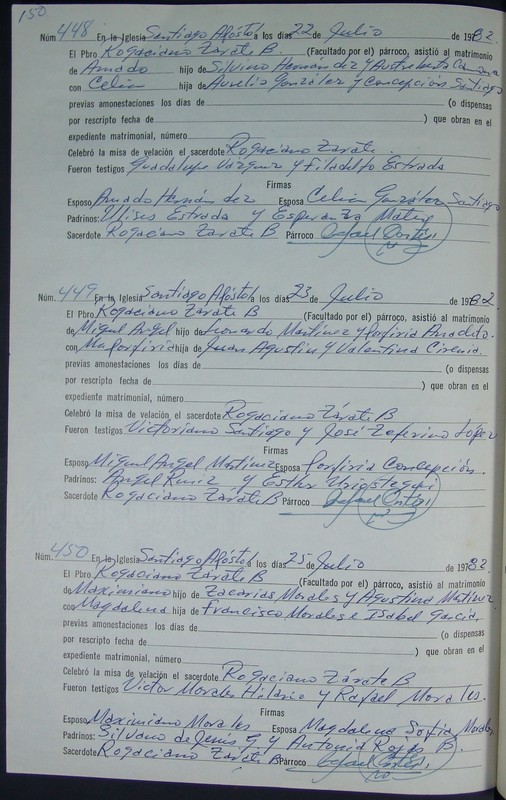 150.
Núm. 448 En la Iglesia Santiago Apóstol a los días 22 de Julio de 1982.
El Pbro Rogaciano Zarate B. (Facultado por el) párroco, asistió al matrimonio
de Amado hijo de Silvino Hernández y Austreberta
con Celia hijo de Aurelio González y Concepción Santiago
previas amonestaciones los días de (o dispensas
por rescripto fecha de ) que obran en el
expediente matrimonial, número
Celebró la misa de velación el sacerdote Rogaciano Zárate.
Fueron testigos Guadalupe Vázquez y Filadelfo Estrada
Firmas
Esposo Amado Hernández Esposa Celia González Santiago
Padrinos: Ulises Estrada y Esperanza
Sacerdote Rogaciano Zarate B Párroco Rafael
Núm. 449 En la Iglesia Santiago Apóstol a los días 23 de Julio de 1982
El Pbro Rogaciano Zárate B (Facultado por el) párroco, asistió al matrimonio
de Miguel Angel hijo de Leonardo Martínez y Porfiria
con Ma Porfiria hija de Juan Agustín y Valentina
previas amonestaciones los días de (o dispensas
por rescripto fecha de ) que obran en el
expediente matrimonial, número
Celebró la misa de velación el sacerdote Rogaciano Zárate B
Fueron testigos Victoriano Santiago y José Zeferino López
Firmas
Esposo Miguel Angel Martínez Esposa Porfiria Concepción.
Padrinos: Angel Ruiz y Esther
Sacerdote Rogaciano Zárate B Párroco Rafael
Núm. 450 En la Iglesia Santiago Apóstol a los días 25 de Julio de 1982
El Pbro Rogaciano Zarate B (Facultado por el) párroco, asistió al matrimonio
de Maximiano hijo de Zacarias Morales y Agustina Martínez
con Magdalena hija de Francisco Morales e Isabel García.
previas amonestaciones los días de (o dispensas
por rescripto fecha de ) que obran en el
expediente matrimonial, número
Celebró la misa de velación el sacerdote Rogaciano Zárate B
Fueron testigos Victor Morales Hilario y Rafael Morales.
Firmas
Esposo Maximiano Morales Esposa Magdalena Sofía Morales
Padrinos: Silvano de Jesús G y Antonia Rojas B.
Sacerdote Rogaciano Zarate B Párroco Rafael